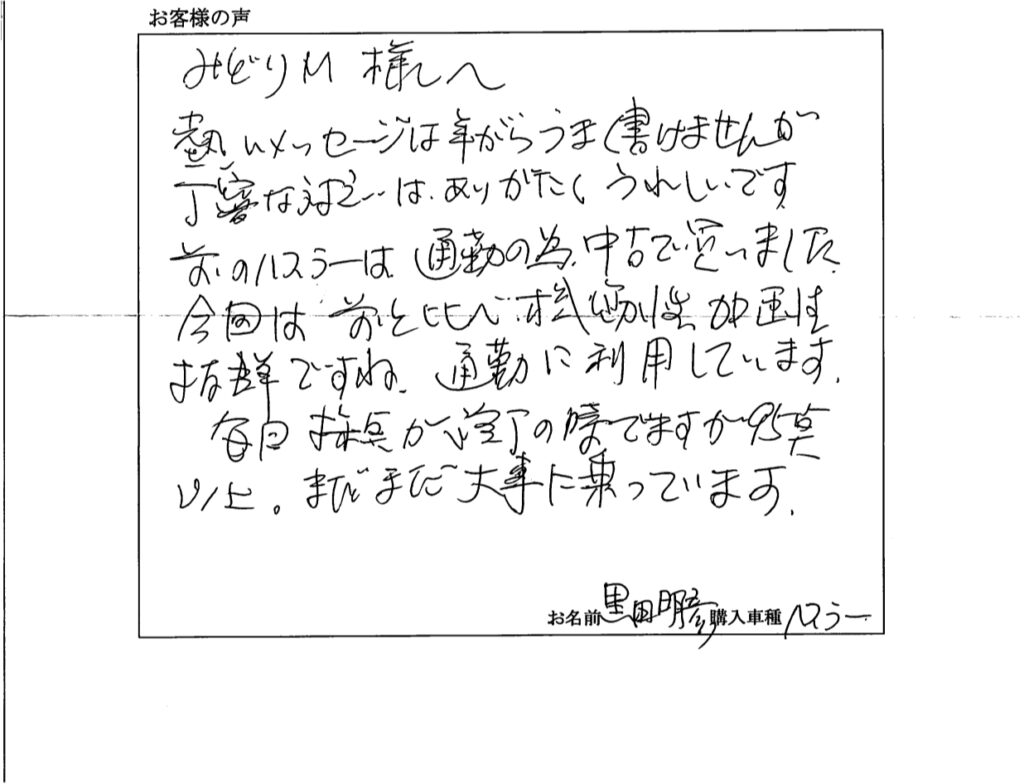 お客様の声
みどりM様へ
熱いメッセージは年がらうまく書けませんが
丁寧な はありがたくうれしいです
前のハスラーは通勤の為、中古で買いました。
今回は前と比べ機動性加速性
抜群ですね。通勤に利用しています。
毎日採点が終了の時ですが95点
以上。まだまだ大事に乗っています。
お名前 黒田明彦 購入車種 ハスラー